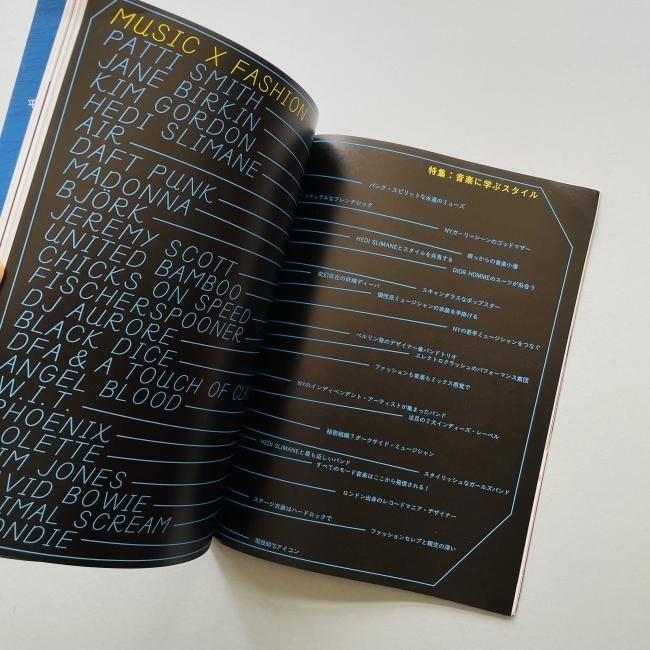 平
MUSIC X FASHION
PATTI SMITH
JANE BIRKIN
KIM GORDON
HEDI SLIMANE
AIR
DAFT PUNK
MADONNA
BJÖRK
JEREMY SCOTT
UNITED BAMBOO
CHICKS ON SPEED
FISCHERSPOONER
DJ AURORE
BLACK DICE
DFA & A TOUCH OF CLA
ANGEL BLOOD
W.I.T.
PHOENIX
OLETTE
IM JONES
AVID BOWIE
IMAL SCREAM
ONDIE
特集:音楽に学ぶスタイル
パンク・スピリットな永遠のミューズ
チュラルなフレンチシック
NYガーリーシーンのゴッドマザー
HEDI SLIMANEとスタイルを共有する
根っからの音楽小僧
DIOR HOMMEのスーツが似合う
変幻自在の妖精ディーバ
スキャンダラスなポップスター
個性派ミュージシャンの衣装を手掛ける
NYの若手ミュージシャンをつなぐ
ベルリン発のデザイナー兼バンドトリオ
エレクトロクラッシュのパフォーマンス集団
ファッションも音楽もミックス感覚で
NYのインディペンデント・アーティストが集まったバンド
注目の2大インディーズ・レーベル
秘密組織?ダークサイド・ミュージシャン
スタイリッシュなガールズバンド
HEDI SLIMANEと最も近しいバンド
すべてのモード音楽はここから発信される!
ロンドン出身のレコードマニア・デザイナー
ステージ衣装はハードロックで
ファッションセレブと親交の深い
現役80'Sアイコン